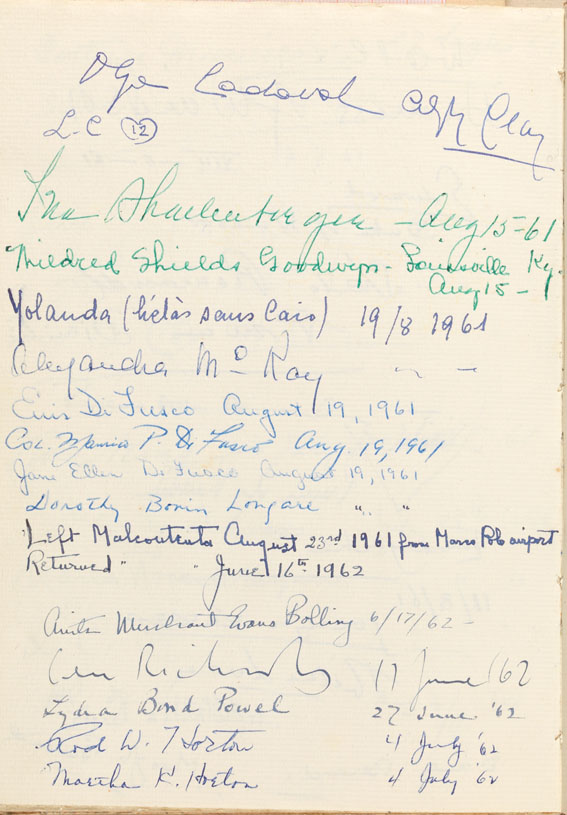 Olga Cadaval
L.C 12
Ina Shallenberger - Aug 15-61
Mildred Shields Goodwyn - Louisville Ky.
Aug 15 -
Yolanda (hélàs sans Caro) 19/8 1961
Alexandra McKay " "
Enis Di Fusco August 19, 1961
Col. P. Di Fusco Aug. 19, 1961
Jane Ellen Di Fusco August 19, 1961
Dorothy Bonin Longare " "
Left Malcontenta August 23rd 1961 from Marco Polo airport
Returned " " June 16th 1962
Anita Merchant Evans Bolling 6/17/62 -
17 June '62
Lydia Bond Powel 27 June '62
Rod W. Horton 4 July '62
Martha K. Horton 4 July '62